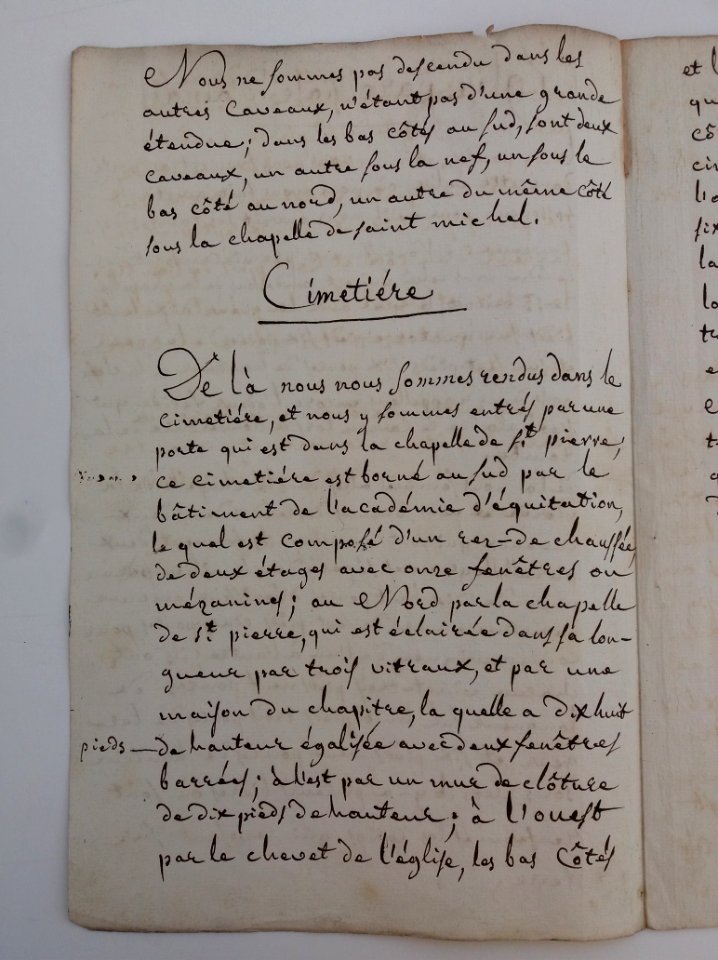 Nous ne sommes pas descendu dans les
autres caveaux, n'étant pas d'une grande
étendue; dans les bas côtés au sud, sont deux
caveaux, un autre sous la nef, un sous le
bas côté au nord, un autre du même côté
sous la chapelle de saint michel.
Cimetiére
De là nous nous sommes rendus dans le
cimetiére, et nous y sommes entrés par une
porte qui est dans la chapelle de St. pierre;
ce cimetiére est borné au sud par le
bâtiment de l'académie d'équitation,
le quel est composé d'un rez-de chaussée,
de deux étages avec onze fenêtres ou
mézanines; au Nord par la chapelle
de St. pierre, qui est éclairée dans sa lon-
gueur par trois vitraux, et par une
maison du chapitre, la quelle a dix huit
pieds — de hauteur égalisée avec deux fenêtres
barrées; à l'est par un mur de clôture
de dix pieds de hauteur; à l'ouest
par le chevet de l'église, les bas côtés
et l
qu
cô
la